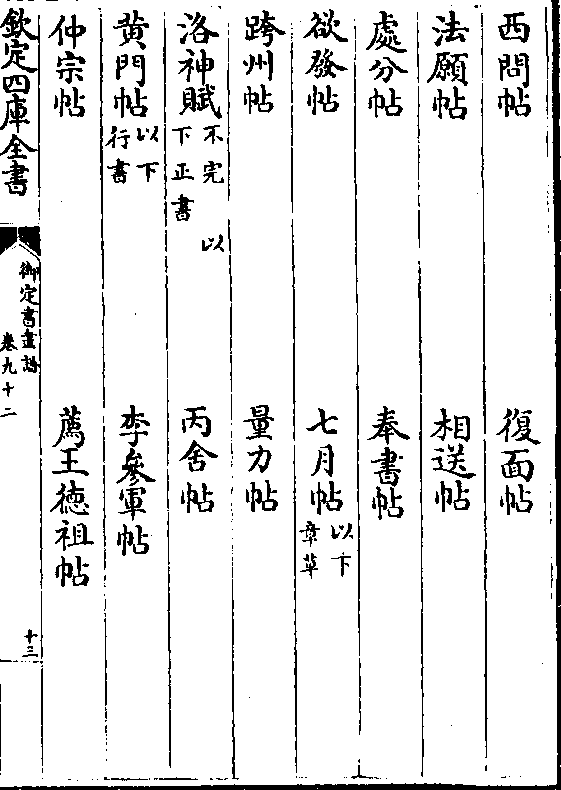 西問帖　復面帖
法願帖　相送帖
處分帖　奉書帖
欲發帖　七月帖以下章草
跨州帖　量力帖
洛神賦不完　以下正書　丙舍帖
黄門帖以下行書　李參軍帖
仲宗帖　薦王徳祖帖
欽定四庫全書　御定書畫譜　卷九十二　十三